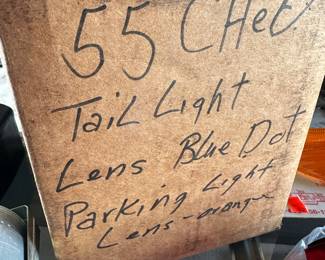 55 CHev
Tail Light
Lens Blue Dot
Parking Light
Lens - orange